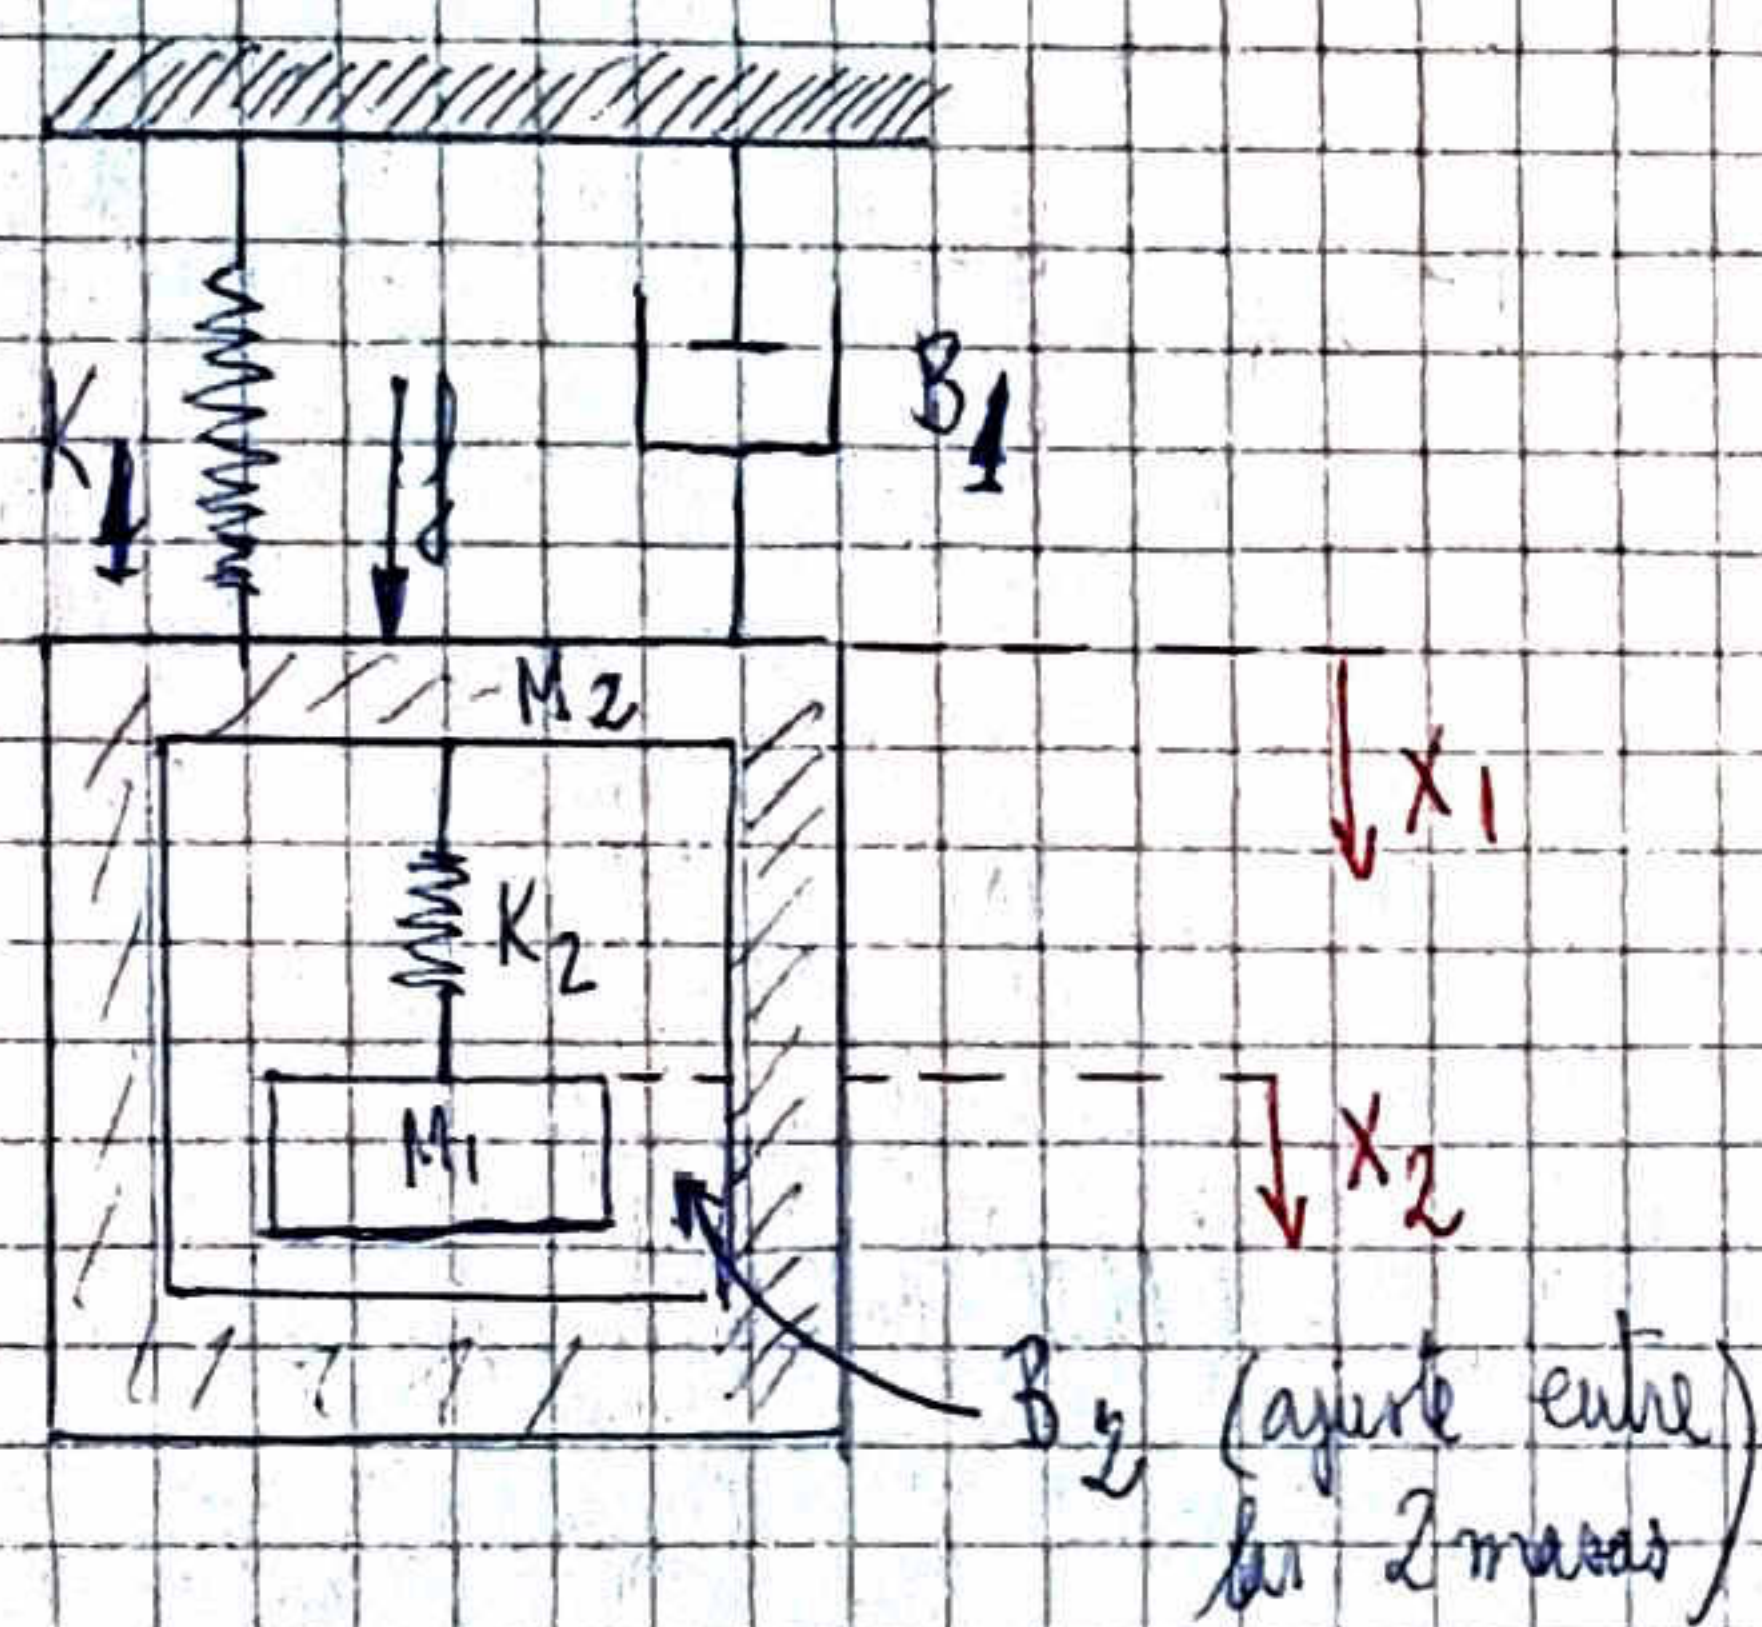 K1
f
B1
M2
X1
K2
M1
X2
B2 (ajuste entre
las 2 masas)